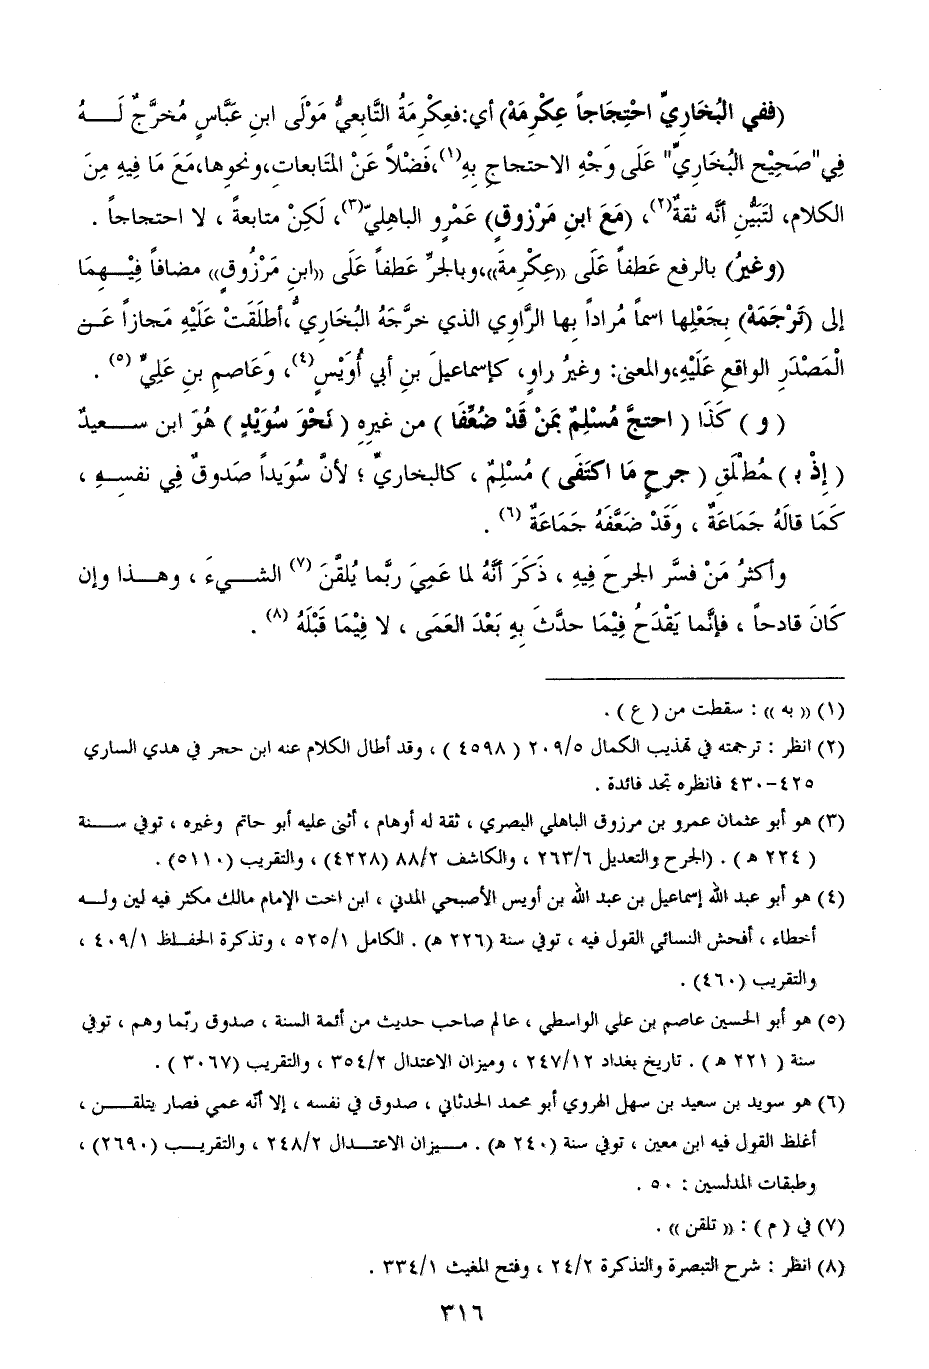 (ففي البُخَارِيِّ احْتِجَاجاً عِكْرِمَهْ) أي:فعِكْرِمَةُ التَّابعيُّ مَوْلَى ابنِ عَبَّاسٍ مُخرَّجٌ لَـــهُ
فِي"صَحِيْحِ البُخَارِيِّ" عَلَى وَجْهِ الاحتجاجِ بِهِ(١)،فَضْلاً عَنْ المتَابعاتِ،ونحوِها،مَعَ مَا فِيهِ مِنَ
الكلامِ، لتَبَيُّنِ أنَّه ثقةٌ(٢)، (مَعَ ابنِ مَرْزوقٍ) عَمْرٍو الباهليِّ(٣)، لَكِنْ متابعةً ، لا احتجاجاً .
(وغيرُ) بالرفعِ عَطفاً عَلَى «عِكْرِمةَ»،وبالجرِّ عَطفاً عَلَى «ابنِ مَرْزُوقٍ» مضافاً فِيْـهِمَا
إلى (تَرْجَمَهْ) بجَعْلِها اسماً مُراداً بها الرَّاوِي الذي خرَّجَهُ البُخَاريُّ ،أطلَقَتْ عَلَيْهِ مَجازاً عَـنِ
الْمَصْدَرِ الواقعِ عَلَيْهِ،والمعنى: وغيرُ راوٍ، كإسماعيلَ بنِ أبي أُوَيْسٍ(٤)، وعَاصمِ بنِ عَلِيٍّ (٥) .
( و ) كَذَا ( احتجَّ مُسْلِمٌ بمَنْ قَدْ ضُعِّفَا ) من غيرِهِ ( نَحْوَ سُوَيْدٍ ) هُوَ ابن سـعيدٍ
( إذْ بـ ) ـمُطْلَقِ ( جرحٍ مَا اكتَفَى ) مُسْلِمٌ ، كالبخاريِّ ؛ لأنَّ سُوَيداً صَدوقٌ فِي نفسِـهِ ،
كَمَا قالَهُ جَمَاعَةٌ ، وَقَدْ ضَعَّفَهُ جَمَاعَةٌ (٦) .
وأكثرُ مَنْ فسَّر الجرحَ فِيهِ ، ذَكَرَ أنَّهُ لما عَمِيَ ربَّما يُلقَّنَ (٧) الشـيءَ ، وهـذا وإن
كَانَ قادحاً ، فإنَّما يَقْدَحُ فِيْمَا حدَّثَ بِهِ بَعْدَ العَمَى ، لا فِيْمَا قَبْلَهُ (٨) .
(١) « به » : سقطت من ( ع ) .
(٢) انظر : ترجمته في تهذيب الكمال ٢٠٩/٥ ( ٤٥٩٨ ) ، وقد أطال الكلام عنه ابن حجر في هدي الساري
٤٢٥-٤٣٠ فانظره تجد فائدة .
(٣) هو أبو عثمان عمرو بن مرزوق الباهلي البصري ، ثقة له أوهام ، أثنى عليه أبو حاتم وغيره ، توفي سـنة
( ٢٢٤ هـ ) . (الجرح والتعديل ٢٦٣/٦ ، والكاشف ٨٨/٢ (٤٢٢٨) ، والتقريب (٥١١٠) .
(٤) هو أبو عبد الله إسماعيل بن عبد الله بن أويس الأصبحي المدني ، ابن اخت الإمام مالك مكثر فيه لين ولـه
أخطاء ، أفحش النسائي القول فيه ، توفي سنة (٢٢٦ هـ) . الكامل ٥٢٥/١ ، وتذكرة الحفـاظ ٤٠٩/١ ،
والتقريب (٤٦٠) .
(٥) هو أبو الحسين عاصم بن علي الواسطي ، عالم صاحب حديث من أئمة السنة ، صدوق ربّما وهم ، توفي
سنة ( ٢٢١ هـ ) . تاريخ بغداد ٢٤٧/١٢ ، وميزان الاعتدال ٣٥٤/٢ ، والتقريب (٣٠٦٧ ) .
(٦) هو سويد بن سعيد بن سهل الهروي أبو محمد الحدثاني ، صدوق في نفسه ، إلا أنّه عمي فصار يتلقـن ،
أغلظ القول فيه ابن معين ، توفي سنة (٢٤٠ هـ) . مـيزان الاعتـدال ٢٤٨/٢ ، والتقريـب (٢٦٩٠) ،
وطبقات المدلسين : ٥٠ .
(٧) في ( م ) : « تلقن » .
(٨) انظر : شرح التبصرة والتذكرة ٢٤/٢ ، وفتح المغيث ٣٣٤/١ .
٣١٦